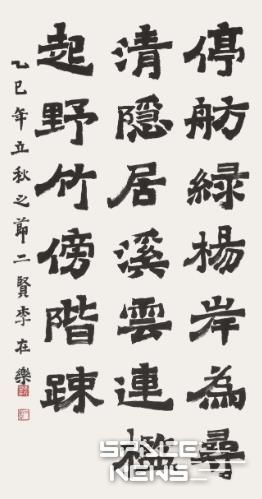 停舫綠楊岸為尋
清隱居溪雲連檻
起野竹傍階踈
乙巳年立秋之節二賢李在樂
SPACE
NEWS